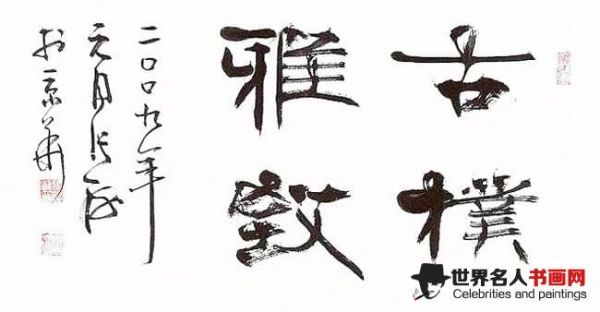 古樸
雅致
二〇〇九年
元月
於京華
世界名人书画网
Celebrities and paintings